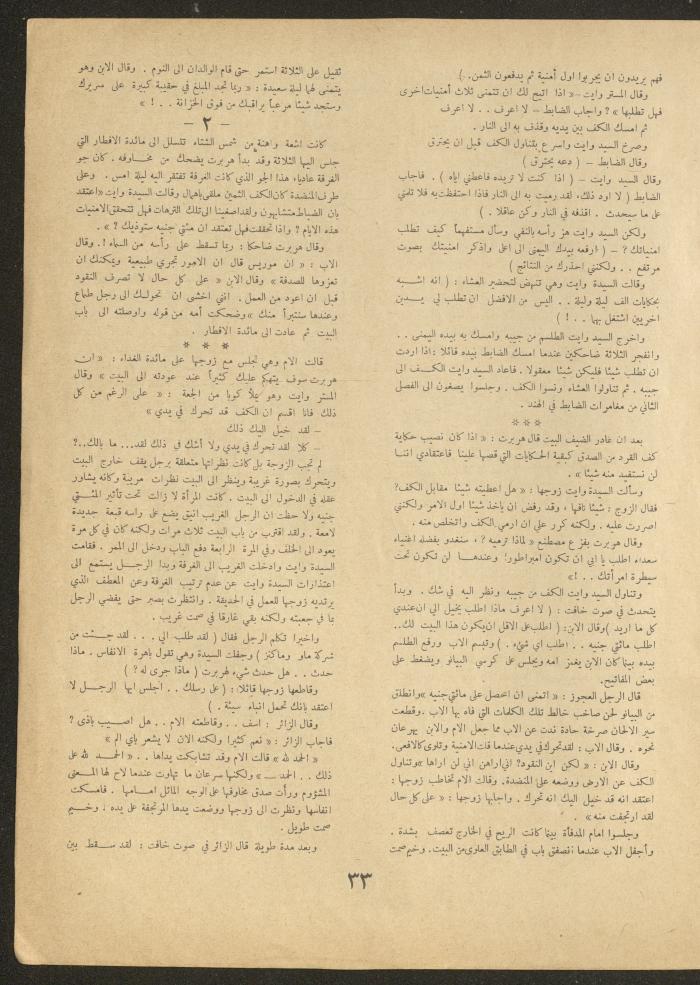 فهم يريدون ان يجربوا اول أمنية ثم يدفعون الثمن. )
وقال المستر وايت –« اذا اتيح لك ان تتمنى ثلاث أمنيات اخرى
فهل تطلبها » ? واجاب الضابط – لا اعرف . . لا اعرف
ثم امسك الكف بين يديه وقذف به الى النار .
وصرخ السيد وايت واسرع يتناول الكف قبل ان يحترق
وقال الضابط – ( دعه يحترق )
وقال السيد وايت – ( اذا كنت لا تريده فاعطني اياه ) . فاجاب
الضابط ( لا اود ذلك، لقد رميت به الى النار فاذا احتفظت به فلا تلمني
على ما سيحدث . اقذفه في النار وكن عاقلا . )
ولكن السيد وايت هز رأسه بالنفي وسأل مستفهماً كيف تطلب
امنياتك ? – ( ارفعه بيدك اليمنى الى اعلى واذكر امنيتك بصوت
مرتفع . . ولكنني احذرك من النتائج )
وقالت السيدة وايت وهي تنهض لتحضير العشاء : ( انه اشــبه
بحكايات الف ليلة وليلة . . اليس من الافضل ان تطلب لي يــدين
اخريين اشتغل بهما . . ! )
واخرج السيد وايت الطلسم من جيبه وامسك به بيده اليمنى . .
وانفجر الثلاثة ضاحكين عندما امسك الضابط بيده قائلا : اذا اردت
ان تطلب شيئا فليكن شيئا معقولا . فاعاد السيد وايت الكــف الى
جيبه . ثم تناولوا العشاء ونسوا الكف . وجلسوا يصغون الى الفصل
الثاني من مغامرات الضابط في الهند .
* * *
بعد ان غادر الضيف البيت قال هربرت : « اذا كان نصيب حكاية
كف القرد من الصدق كبقية الحكايات التي قصها علينا فاعتقادي اننا
لن نستفيد منه شيئا » .
وسألت السيدة وايت زوجها : « هل اعطيته شيئا مقابل الكف?
فقال الزوج : شيئا تافها ، وقد رفض ان ياخذ شيئا اول الامر ولكنني
اصررت عليه . ولكنه كرر علي ان ارمي الكف واتخلص منه .
وقال هربرت بفزع مصطنع « لماذا ترميه ? ، سنغدو بفضله اغنياء
سعداء اطلب يا ابي ان تكون امبراطور! وعندهــا لن تكون تحت
سيطرة امرأتك . . !»
وتناول السيد وايت الكف من جيبه ونظر اليه في شك . وبدأ
يتحدث في صوت خافت : ( لا اعرف ماذا اطلب يخيل الي ان عندي
كل ما اريد )وقال الابن: ( اطلب على الاقل ان يكون هذا البيت لك..
اطلب مائتي جنيه . . اطلب اي شيء . ) وتبسم الاب ورفع الطلسم
بيده بينما كان الابن يغمز امه ويجلس على كرسي البيانو ويضغط على
بعض المفاتيح .
قال الرجل العجوز : « اتمنى ان احصل على مائتي جنيه »وانطلق
من البيانو لحن صاخب خالط تلك الكلمات التي فاه بها الاب . وقطعت
سير الالحان صرخة حادة ندت عن الاب مما جعل الام والابن يهرعان
نحوه . وقال الاب : لقد تحرك في يدي عندما قلت الامنية وتلوى كالافعى.
وقال الابن : « لكن اين النقود? اني اراهن اني لن اراها »وتناول
الكف عن الارض ووضعه على المنضدة. وقالت الام تخاطب زوجها :
اعتقد انه قد خيل اليك انه تحرك . واجابها زوجها : « على كل حال
لقد ارتجفت منه » .
وجلسوا امام المدفأة بينما كانت الريح في الخارج تعصف بشدة .
وأجفل الاب عندما انصفق باب في الطابق العلوي من البيت. وخيم صمت
ثقيل على الثلاثة استمر حتى قام الوالدان الى النوم . وقال الابن وهو
يتمنى لهما ليلة سعيدة : « ربما تجد المبلغ في حقيبة كبيرة على سريرك
وستجد شيئا مرعباً يراقبك من فوق الخزانة . . ! »
– ٢ –
كانت اشعة واهنة من شمس الشتاء تتسلل الى مائدة الافطار التي
جلس اليها الثلاثة وقد بدأ هربرت يضحك من مخــاوفه . كان جو
الغرفة عادياء هذا الجو الذي كانت الغرفة تفتقر اليه ليلة امس . وعلى
طرف المنضدة كان الكف الثمين ملقى باهمال وقالت السيدة وايت «اعتقد
بان الضباط متشابهون ولقد اصغينا الى تلك الترهات فهل تتحقق الامنيات
هذه الايام ? واذا تحققت فهل تعتقد ان مئتي جنيه ستوذيك ? » .
وقال هربرت ضاحكا : ربما تسقط على رأسه من السماء ! . وقال
الاب : « ان موريس قال ان الامور تجري طبيعية ويمكنك ان
تعزوها للصدفة » وقال الابن « على كل حال لا تصرف النقود
قبل ان اعود من العمل . انني اخشى ان تحولــك الى رجل طماع
وعندها سنتبرأ منك »وضحكت أمه من قوله واوصلته الى باب
البيت ثم عادت الى مائدة الافطار .
* * *
قالت الام وهي تجلس مع زوجها على مائدة الغداء : « ان
هربرت سوف يتهكم عليك كثيراً عند عودته الى البيت » وقال
المستر وايت وهو يملأ كوبا من الجعة : « على الرغم من كل
ذلك فانا اقسم ان الكف قد تحرك في يدي »
– لقد خيل اليك ذلك
– كلا لقد تحرك في يدي ولا أشك في ذلك لقد... ما بالك..?
لم تجب الزوجة بل كانت نظراتها متعلقة برجل يقف خارج البيت
ويتحرك بصورة غريبة وينظر الى البيت نظرات مريبة وكانه يشاور
عقله في الدخول الى البيت . كانت المرأة لا زالت تحت تأثير المئــتي
جنيه ولاحظت ان الرجل الغريب انيق يضع على راسه قبعة جديدة
لامعة . ولقد اقترب من باب البيت ثلاث مرات ولكنه كان في كل مرة
يعود الى الخلف وفي المرة الرابعة دفع الباب ودخل الى الممر . فقامت
السيدة وايت وادخلت الغريب الى الغرفة وبدا الرجــل يستمع الى
اعتذارات السيدة وايت عن عدم ترتيب الغرفة وعن المعطف الذي
يرتديه زوجها للعمل في الحديقة . وانتظرت بصبر حتى يفضي الرجل
بما في جعبته ولكنه بقي غارقا في صمت غريب .
واخيرا تكلم الرجل فقال ( لقد طلب الي . . . لقد جــئت من
شركة ماو وماكنز ) وجفلت السيدة وهي تقول باهرة الانفاس . ماذا
حدث . . هل حدث شيء لهربرت ( ماذا جرى له ? )
وقاطعها زوجها قائلا : ( على رسلك . . اجلس ايها الرجــل لا
اعتقد بانك تحمل انباء سيئة . )
وقال الزائر : اسف . . وقاطعته الام . . هل اصــيب باذى ?
فاجاب الزائر : « نعم كثيرا ولكنه الان لا يشعر باي الم »
« الحمد لله » قالت الام وقد تشابكت يداها . . « الحمــد لله على
ذلك . . الحمد ــ » ولكنها سرعان ما تهاوت عندما لاح لها المــعنى
المشؤوم ورأت صدق مخاوفها على الوجه المائل امــامها . فامسكت
انفاسها ونظرت الى زوجها ووضعت يدها المرتجفة على يده ، وخــيم
صمت طويل .
وبعد مدة طويلة قال الزائر في صوت خافت : لقد ســقط بين
٣٣